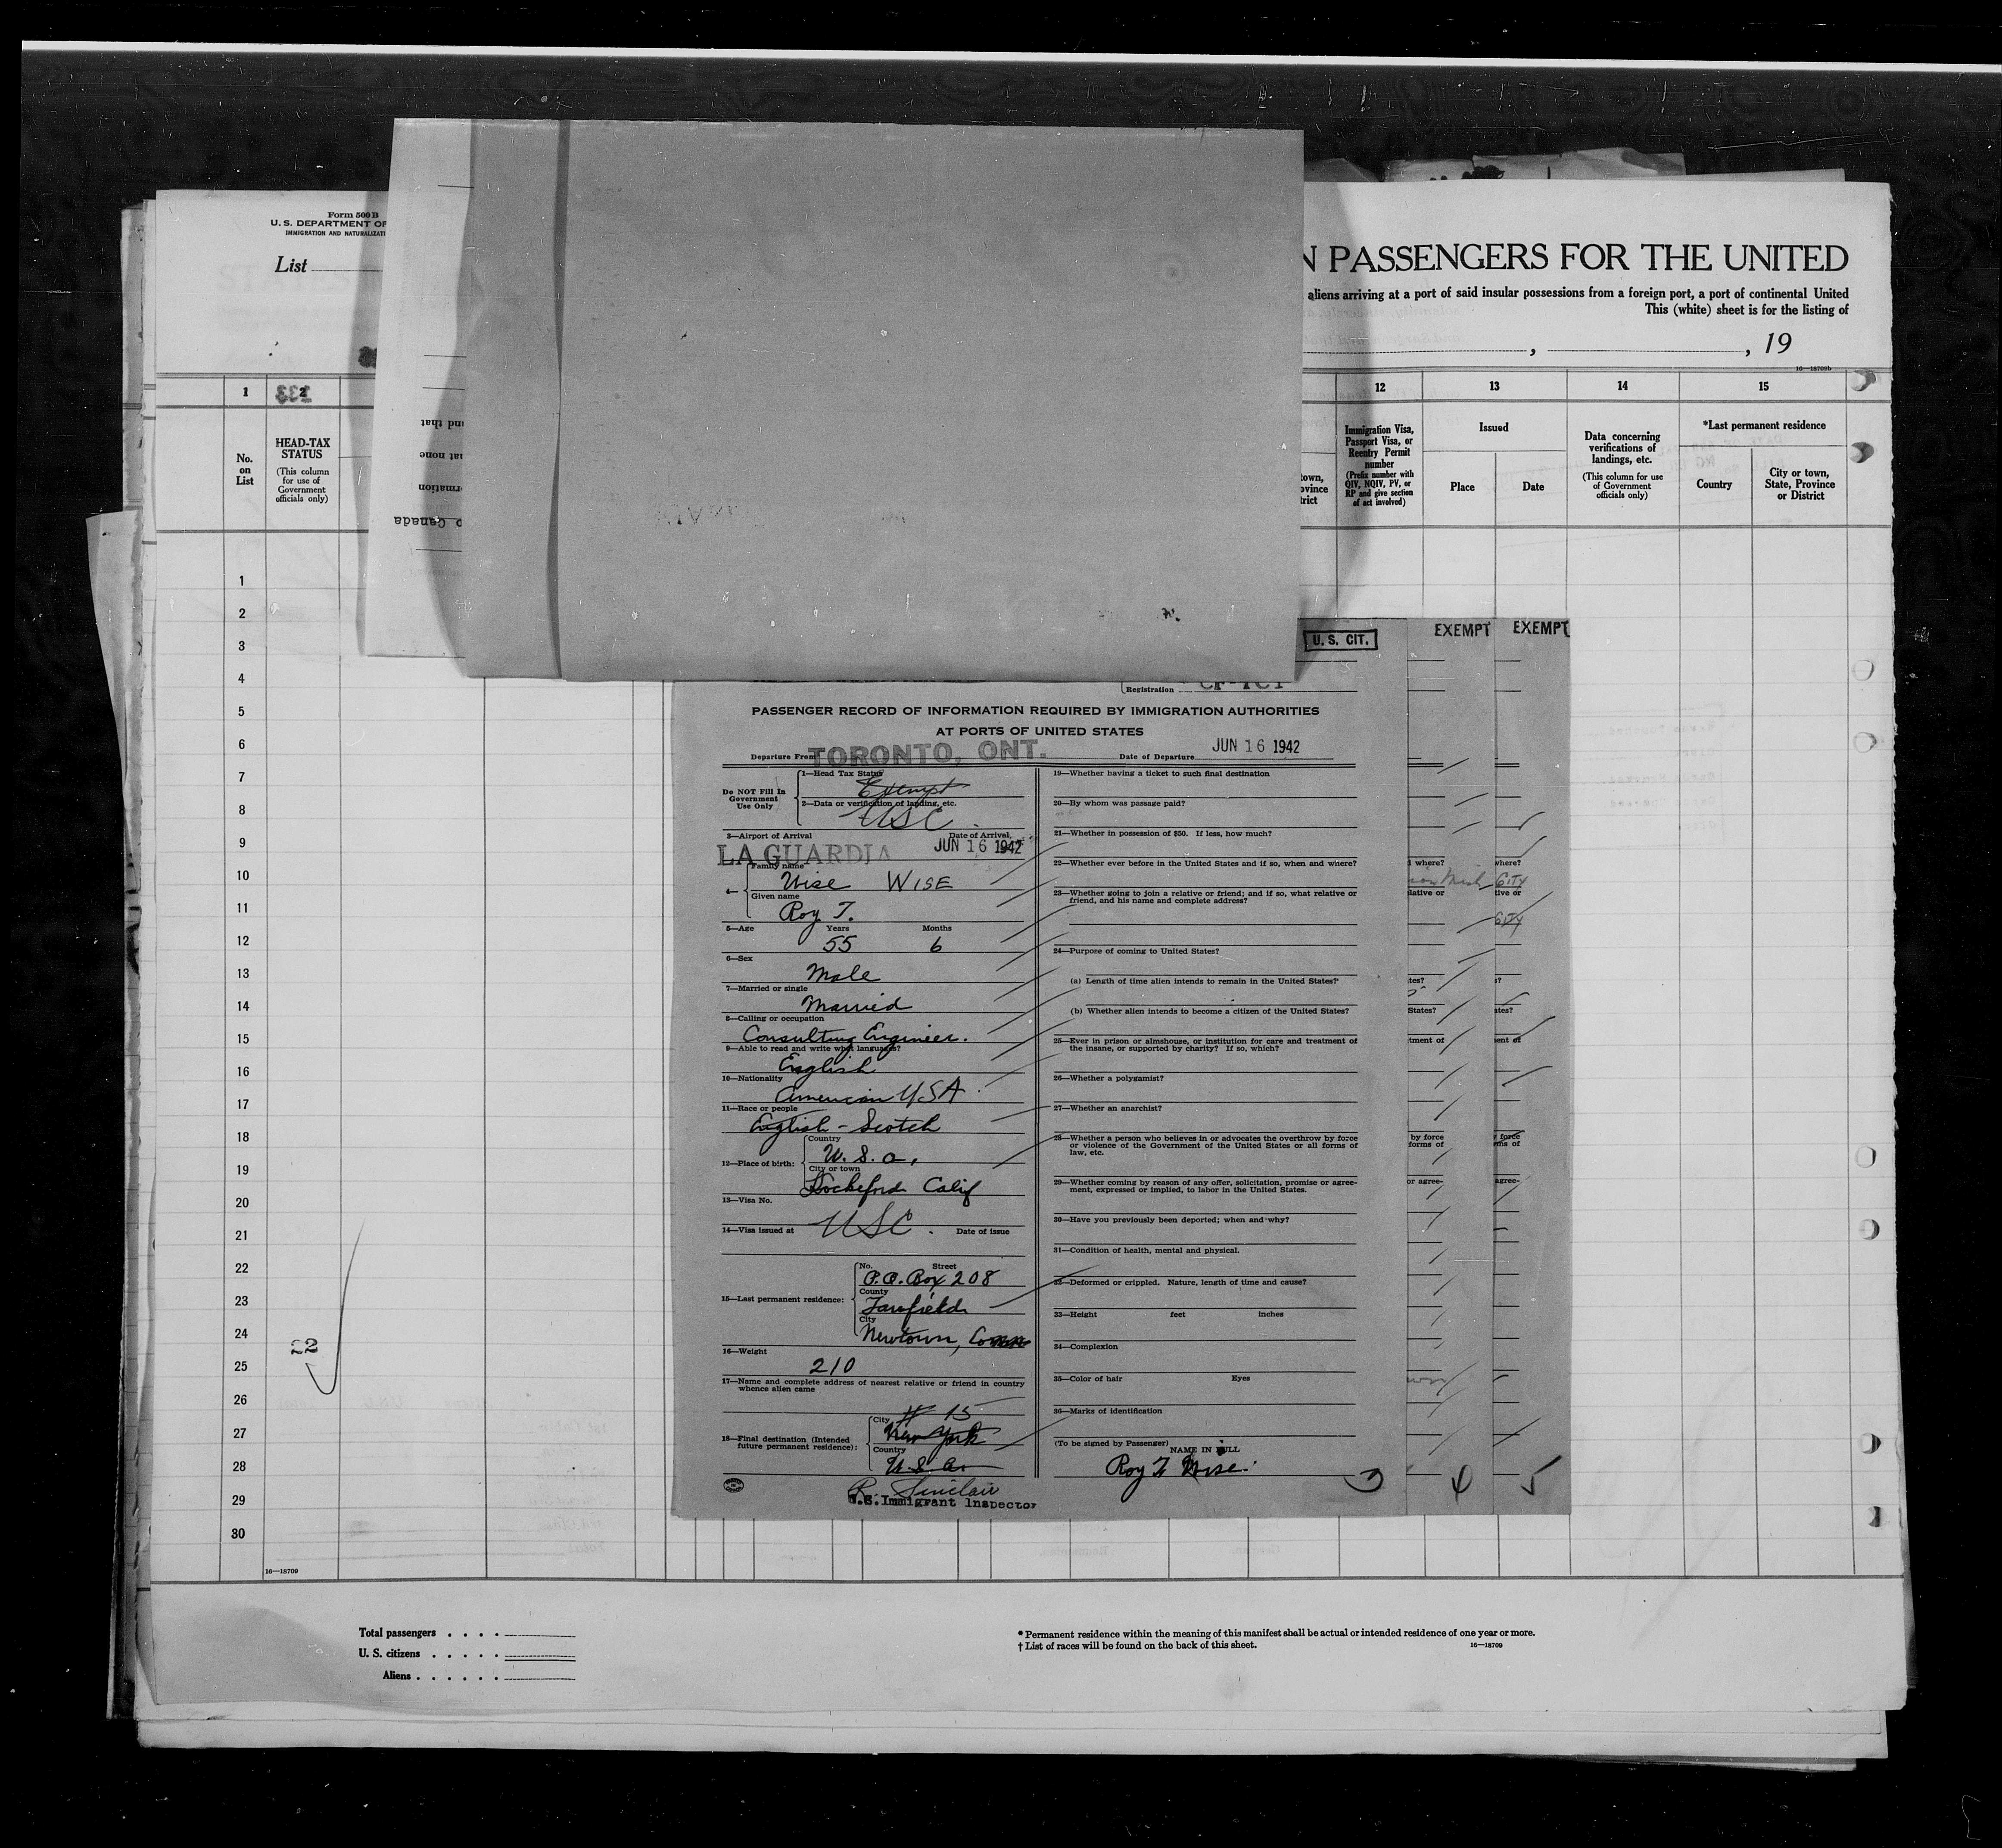 Form 500 B
U. S. DEPARTMENT OF
IMMIGRATION AND NATURALIZATI
List
N PASSENGERS FOR THE UNITED
aliens arriving at a port of said insular possessions from a foreign port, a port of continental United
This (white) sheet is for the listing of
, , 19
16—18709b
1 2 12 13 14 15
233
No. on List
HEAD-TAX STATUS
(This column for use of Government officials only)
town,
ovince
trict
Immigration Visa, Passport Visa, or Reentry Permit number
(Prefix number with QIV, NQIV, PV, or RP and give section of act involved)
Issued
Place Date
Data concerning verifications of landings, etc.
(This column for use of Government officials only)
*Last permanent residence
Country
City or town, State, Province or District
nd that
at none
rmation
o Canada
1
2
3
4
5
6
7
8
9
10
11
12
13
14
15
16
17
18
19
20
21
22
23
24
25
26
27
28
29
30
22
16—18709
U. S. CIT.
EXEMPT
EXEMPT
Registration
PASSENGER RECORD OF INFORMATION REQUIRED BY IMMIGRATION AUTHORITIES
AT PORTS OF UNITED STATES
Departure From TORONTO, ONT. Date of Departure JUN 16 1942
Do NOT Fill In Government Use Only
1—Head Tax Status
Exempt
2—Data or verification of landing, etc.
USC
3—Airport of Arrival Date of Arrival
LA GUARDIA JUN 16 1942
4— Family name
Wise WISE
Given name
Roy T.
5—Age Years Months
55 6
6—Sex
Male
7—Married or single
Married
8—Calling or occupation
Consulting Engineer.
9—Able to read and write what language?
English
10—Nationality
American USA
11—Race or people
English - Scotch
12—Place of birth: Country
U. S. a.
City or town
Lockeford Calif
13—Visa No.
14—Visa issued at USC. Date of issue
15—Last permanent residence: No. Street
P.O. Box 208
County
Fairfield
City
Newtown, Conn
16—Weight
210
17—Name and complete address of nearest relative or friend in country
whence alien came
# 15
18—Final destination (Intended
future permanent residence): City
New York
Country
U.S.a.
R. Sinclair
U.S. Immigrant Inspector
19—Whether having a ticket to such final destination
20—By whom was passage paid?
21—Whether in possession of $50. If less, how much?
22—Whether ever before in the United States and if so, when and where?
23—Whether going to join a relative or friend; and if so, what relative or
friend, and his name and complete address?
24—Purpose of coming to United States?
(a) Length of time alien intends to remain in the United States?
(b) Whether alien intends to become a citizen of the United States?
25—Ever in prison or almshouse, or institution for care and treatment of
the insane, or supported by charity? If so, which?
26—Whether a polygamist?
27—Whether an anarchist?
28—Whether a person who believes in or advocates the overthrow by force
or violence of the Government of the United States or all forms of
law, etc.
29—Whether coming by reason of any offer, solicitation, promise or agree-
ment, expressed or implied, to labor in the United States.
30—Have you previously been deported; when and why?
31—Condition of health, mental and physical.
32—Deformed or crippled. Nature, length of time and cause?
33—Height feet inches
34—Complexion
35—Color of hair Eyes
36—Marks of identification
(To be signed by Passenger)
NAME IN FULL
Roy T Wise
3 4 5
where?
lative or
tes?
States?
tment of
by force
forms of
or agree-
where?
City
tive or
City
s?
ates?
ent of
force
rms of
agree-
Total passengers . . . .
U. S. citizens . . . . .
Aliens . . . . . .
* Permanent residence within the meaning of this manifest shall be actual or intended residence of one year or more.
† List of races will be found on the back of this sheet.
16—18709